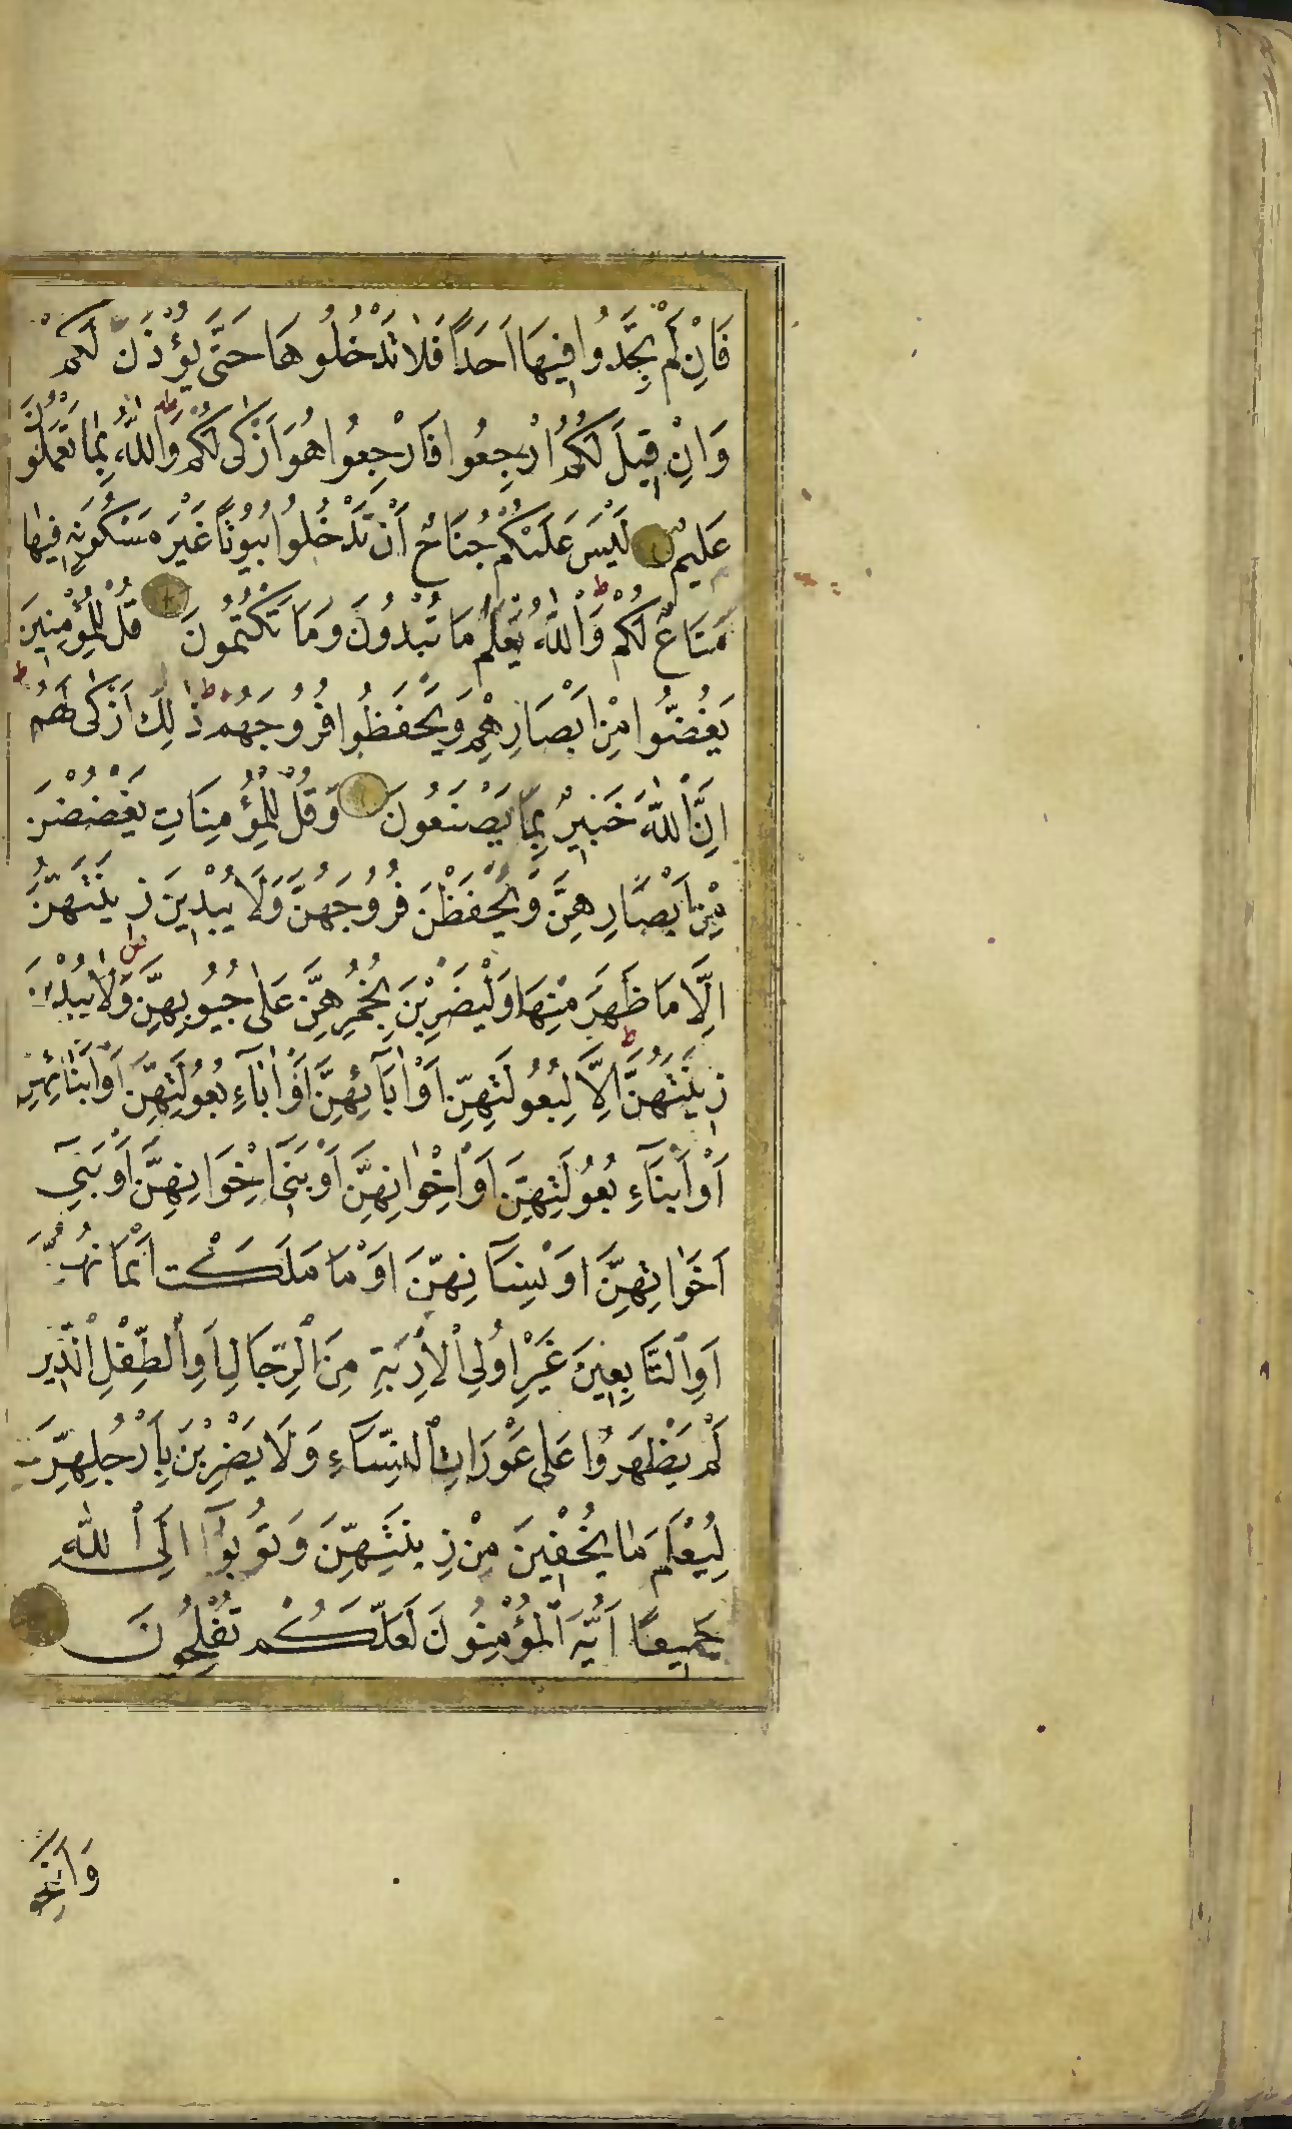 فَاِنْ لَمْ تَجِدُوا فِيهَا اَحَدًا فَلَا تَدْخُلُوهَا حَتّٰى يُؤْذَنَ لَكُمْ
وَاِنْ قِيلَ لَكُمُ ارْجِعُوا فَارْجِعُوا هُوَ اَزْكٰى لَكُمْ ط وَاللّٰهُ بِمَا تَعْمَلُونَ
عَلِيمٌ لَيْسَ عَلَيْكُمْ جُنَاحٌ اَنْ تَدْخُلُوا بُيُوتًا غَيْرَ مَسْكُونَةٍ فِيهَا
مَتَاعٌ لَكُمْ ط وَاللّٰهُ يَعْلَمُ مَا تُبْدُونَ وَمَا تَكْتُمُونَ قُلْ لِلْمُؤْمِنِينَ
يَغُضُّوا مِنْ اَبْصَارِهِمْ وَيَحْفَظُوا فُرُوجَهُمْ ط ذٰلِكَ اَزْكٰى لَهُمْ ط
اِنَّ اللّٰهَ خَبِيرٌ بِمَا يَصْنَعُونَ وَقُلْ لِلْمُؤْمِنَاتِ يَغْضُضْنَ
مِنْ اَبْصَارِهِنَّ وَيَحْفَظْنَ فُرُوجَهُنَّ وَلَا يُبْدِينَ زِينَتَهُنَّ
اِلَّا مَا ظَهَرَ مِنْهَا وَلْيَضْرِبْنَ بِخُمُرِهِنَّ عَلٰى جُيُوبِهِنَّ وَلَا يُبْدِينَ
زِينَتَهُنَّ اِلَّا لِبُعُولَتِهِنَّ اَوْ اٰبَآئِهِنَّ اَوْ اٰبَآءِ بُعُولَتِهِنَّ اَوْ اَبْنَائِهِنَّ
اَوْ اَبْنَآءِ بُعُولَتِهِنَّ اَوْ اِخْوَانِهِنَّ اَوْ بَنِى اِخْوَانِهِنَّ اَوْ بَنِي
اَخَوَاتِهِنَّ اَوْ نِسَآئِهِنَّ اَوْ مَا مَلَكَتْ اَيْمَانُهُنَّ
اَوِ التَّابِعِينَ غَيْرِ اُولِي الْاِرْبَةِ مِنَ الرِّجَالِ اَوِ الطِّفْلِ الَّذِينَ
لَمْ يَظْهَرُوا عَلٰى عَوْرَاتِ النِّسَآءِ وَلَا يَضْرِبْنَ بِاَرْجُلِهِنَّ
لِيُعْلَمَ مَا يُخْفِينَ مِنْ زِينَتِهِنَّ وَتُوبُوٓا اِلَى اللّٰهِ
جَمِيعًا اَيُّهَ الْمُؤْمِنُونَ لَعَلَّكُمْ تُفْلِحُونَ